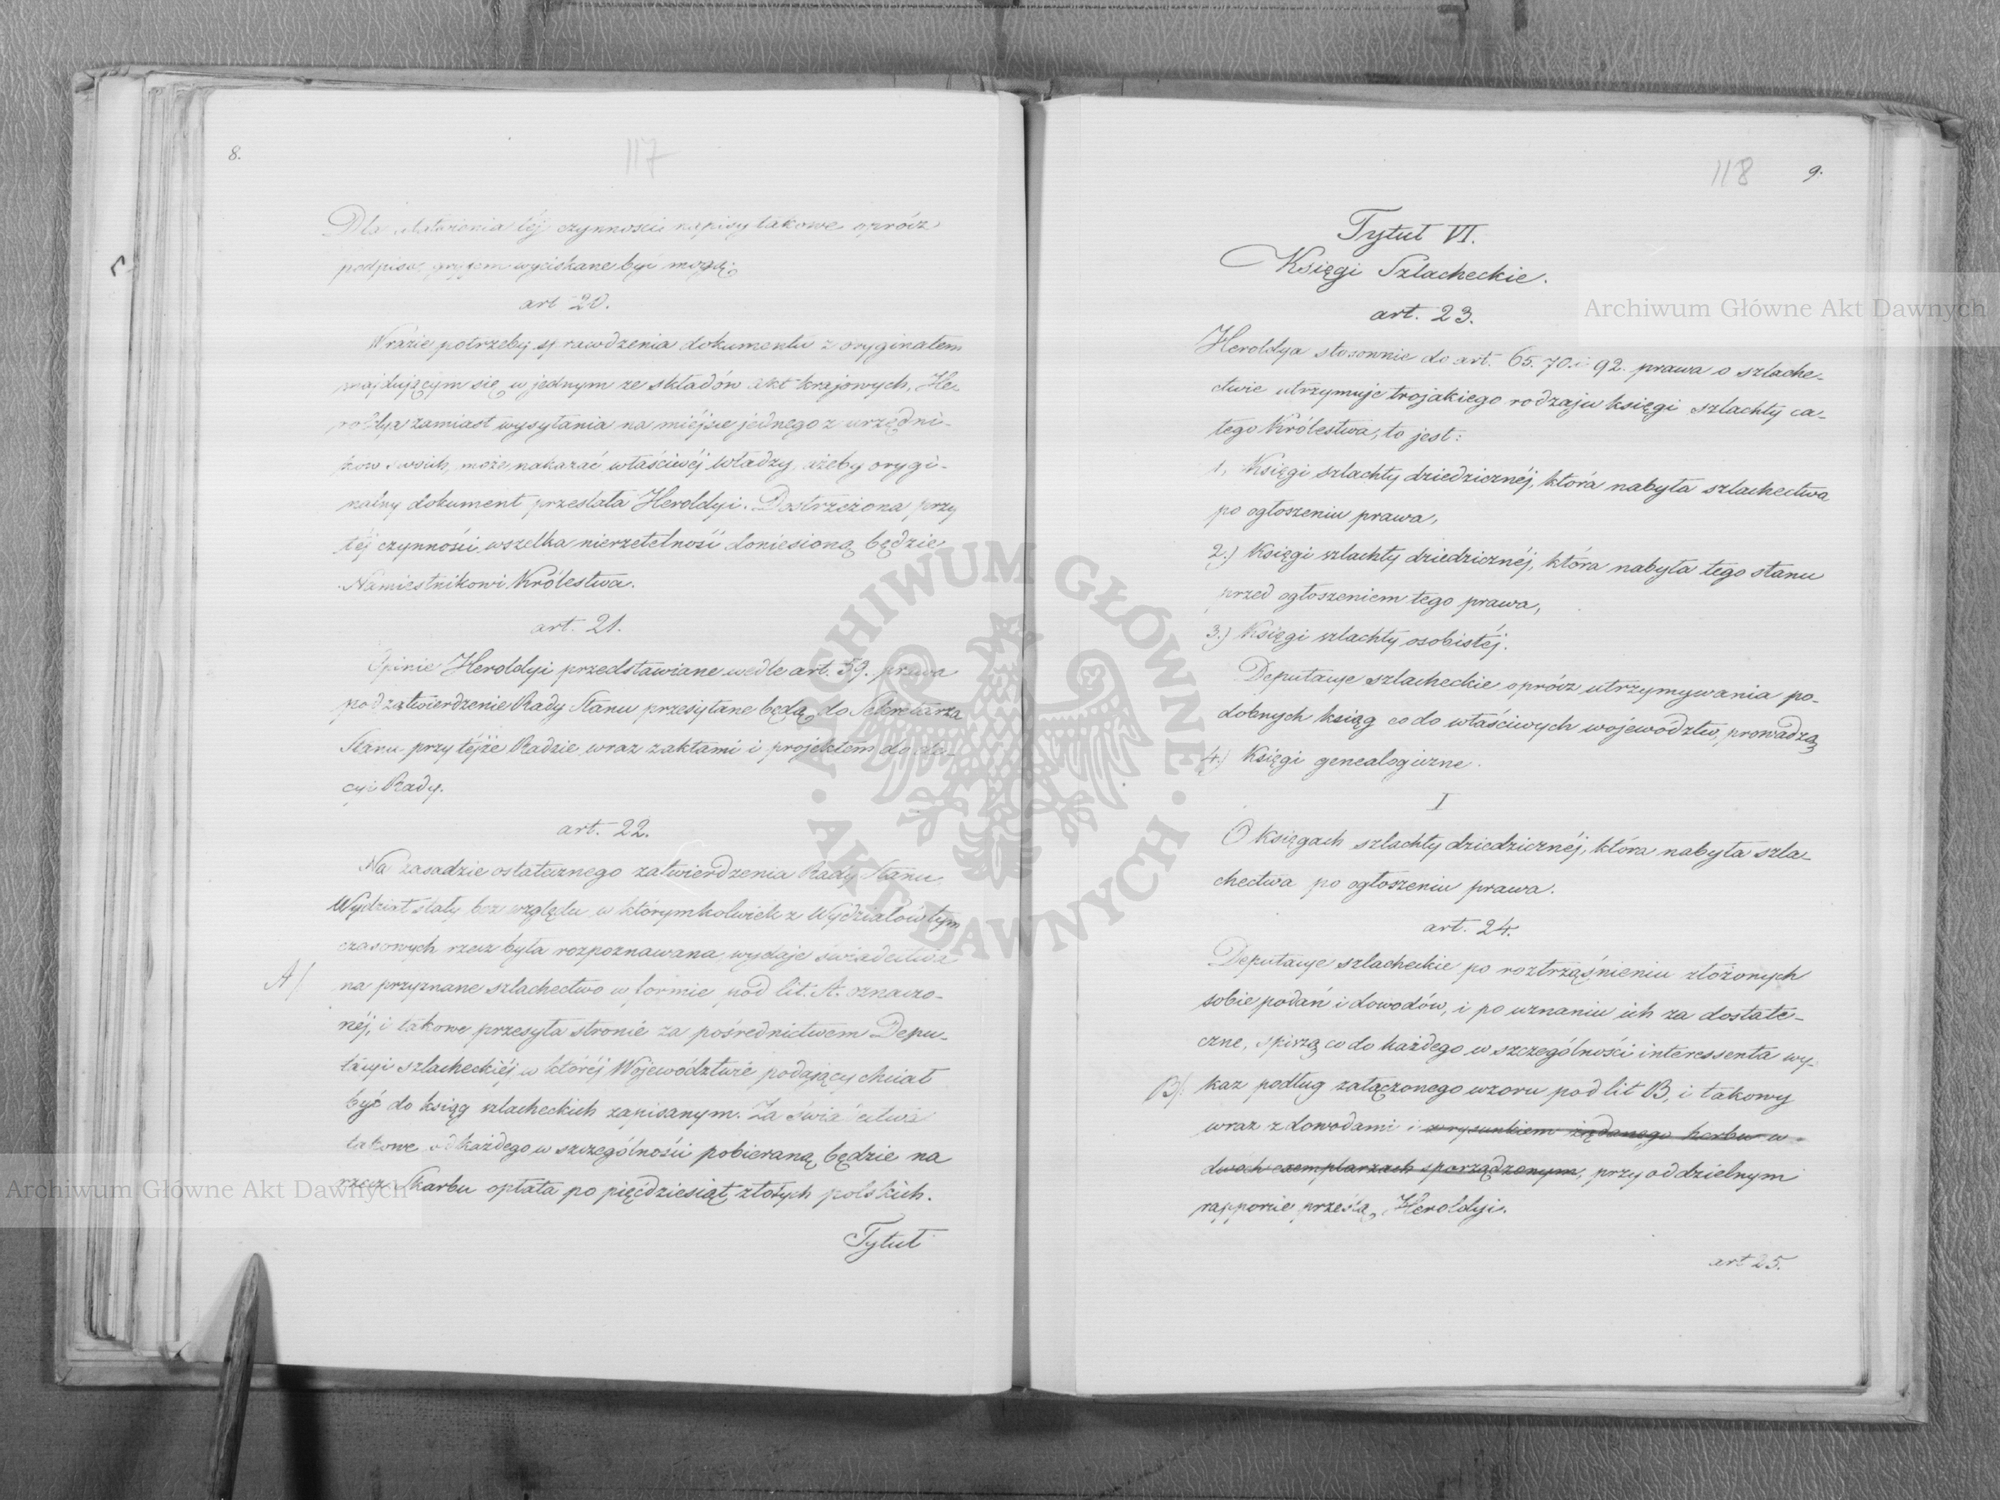 8.
117
Dla ułatwienia téj czynności napisy takowe oprócz
podpisu, gryfem wyciskane być mogą.
art 20.
W razie potrzeby sprawdzenia dokumentu z oryginałem
znajdującym się w jednym ze składów akt krajowych, He-
roldya zamiast wysyłania na miejsce jednego z urzędni-
ków swoich, może nakazać właściwéj władzy, ażeby orygi-
nalny dokument przesłała Heroldyi. Dostrzeżona przy
téj czynności wszelka nierzetelność doniesioną będzie
Namiestnikowi Królestwa.
art. 21.
Opinie Heroldyi przedstawiane wedle art. 59. prawa
pod zatwierdzenie Rady Stanu przesyłane będą, do Sekretarza
Stanu przy téjże Radzie wraz z aktami i projektem do de-
cyi Rady.
art. 22.
Na zasadzie ostatecznego zatwierdzenia Rady Stanu
Wydział stały bez względu w którymkolwiek z Wydziałów tym
czasowych rzecz była rozpoznawana, wydaje świadectwa
A/ na przyznane szlachectwo w formie pod lit. A. oznaczo-
néj, i takowe przesyła stronie za pośrednictwem Depu-
tacyi szlacheckiéj w któréj Województwie podający chciał
być do ksiąg szlacheckich zapisanym. Za świadectwa
takowe od każdego w szczególności pobieraną będzie na
rzecz Skarbu opłata po pięćdziesiąt złotych polskich.
Tytuł
118
9.
Tytuł VI.
Księgi Szlacheckie.
art. 23.
Heroldya stosownie do art. 65. 70. i 92. prawa o szlache-
ctwie utrzymuje trojakiego rodzaju księgi szlachty ca-
łego Królestwa, to jest:
1, Księgi szlachty dziedzicznéj, która nabyła szlachectwa
po ogłoszeniu prawa,
2.) Księgi szlachty dziedzicznéj, która nabyła tego stanu
przed ogłoszeniem tego prawa,
3.) Księgi szlachty osobistéj.
Deputacye szlacheckie oprócz utrzymywania po-
dobnych ksiąg co do właściwych województw, prowadzą
4.) Księgi genealogiczne.
I
O księgach szlachty dziedzicznéj, która nabyła szla-
chectwa po ogłoszeniu prawa.
art. 24.
Deputacye szlacheckie po roztrząśnieniu złożonych
sobie podań i dowodów, i po uznaniu ich za dostate-
czne, spiszą co do każdego w szczególności interessenta wy-
B/. kaz podług załączonego wzoru pod lit B, i takowy
wraz z dowodami i z rysunkiem żądanego herbu w
dwóch exemplarzach sporządzonym, przy oddzielnym
rapporcie prześlą, Heroldyi.
art 25.
Archiwum Główne Akt Dawnych
Archiwum Główne Akt Dawnych
ARCHIWUM GŁÓWNE · AKT DAWNYCH ·